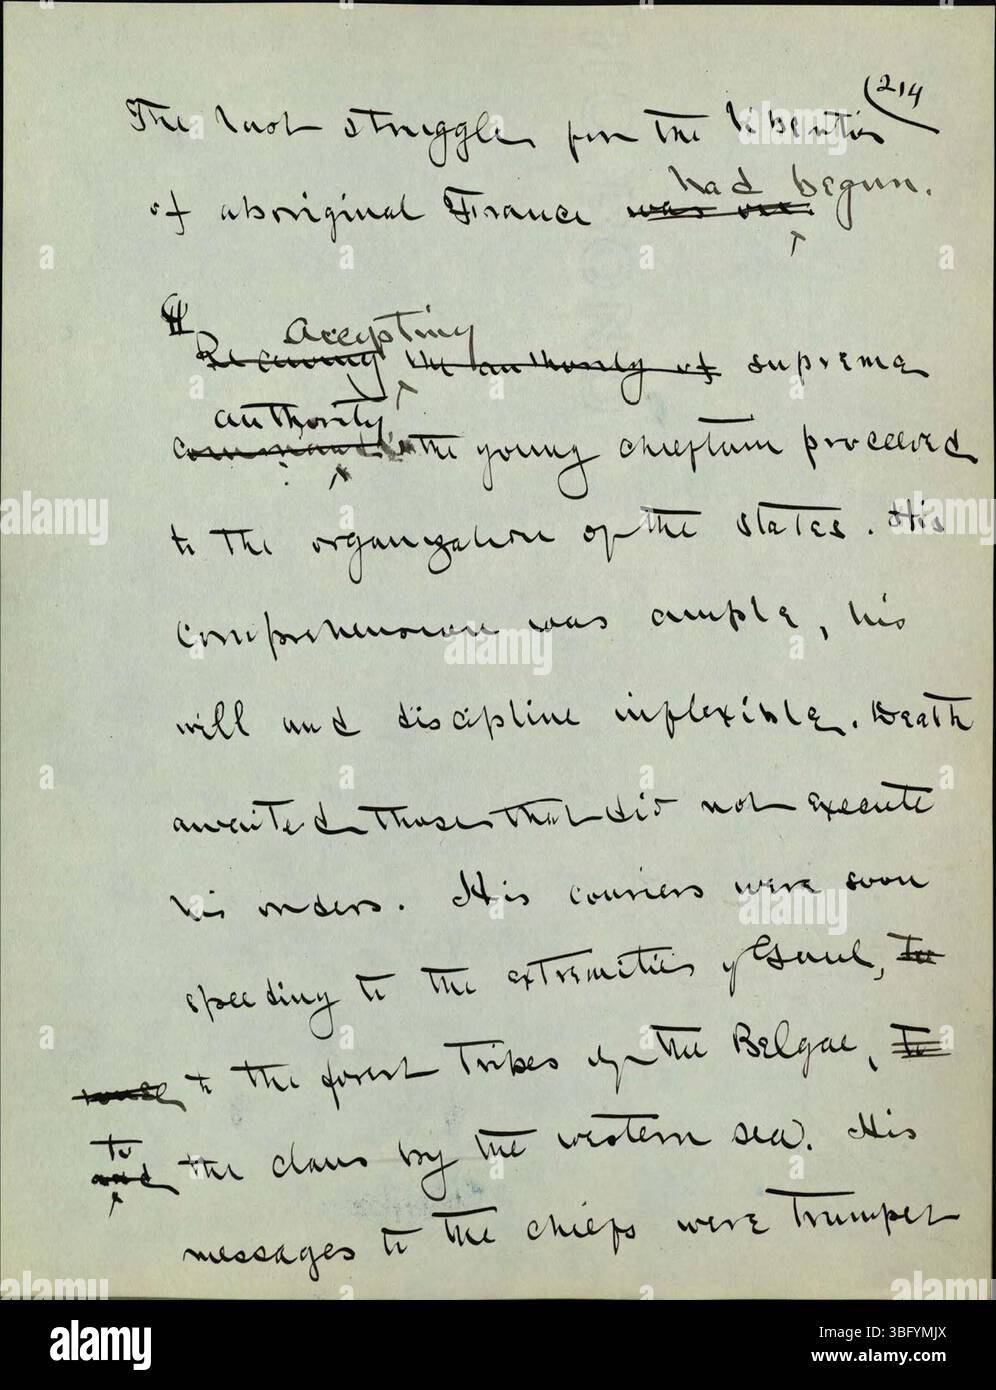 214
The last struggle for the liberties
had begun.
of aboriginal France was over.
Accepting
Receiving the authority of supreme
authority
command, the young chieftain proceeded
to the organization of the states. His
comprehension was ample, his
will and discipline inflexible. Death
awaited those that did not execute
his orders. His couriers were soon
speeding to the extremities of Gaul, to
to the forest tribes of the Belgae, to
to
and the clans by the western sea. His
messages to the chiefs were trumpet
alamy
Image ID: 3BFYMJX
www.alamy.com